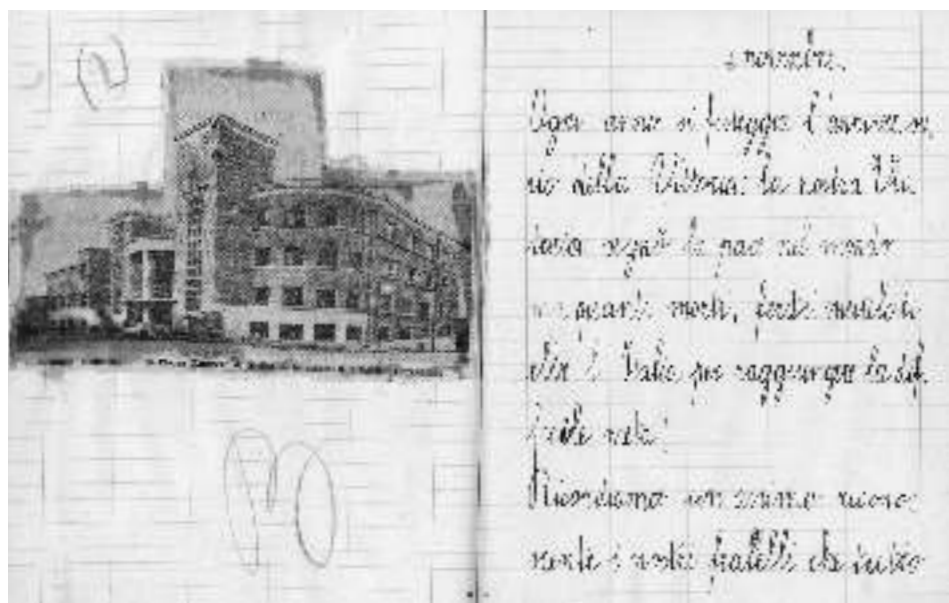 4 novembre.
Ogni anno si festeggia l'anniversa
rio della Vittoria: la nostra Vit
toria segnò la pace nel mondo
ma quanti morti, feriti mutilati
l'Italia per raggiungere la dif
ficile meta!
Ricordiamo con animo ricono
scente i nostri fratelli che tutto